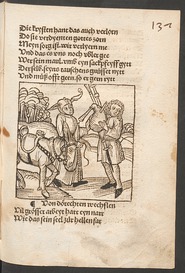 131
Die kristen hant das auch verlorn
Do sie verdyenten gottes zorn
Meyn sorg ist, wir verlyern me
Und das es uns noch übler gee
Wer sein maul umb eyn sackpfeyff gytt
Der selb seyns tauschens genisset nytt
Und müß offt geen so er gern rytt
Von dörechten wechslen
Vil grösser arbeyt hatt eyn narr
Wie das sein seel zür hellen far